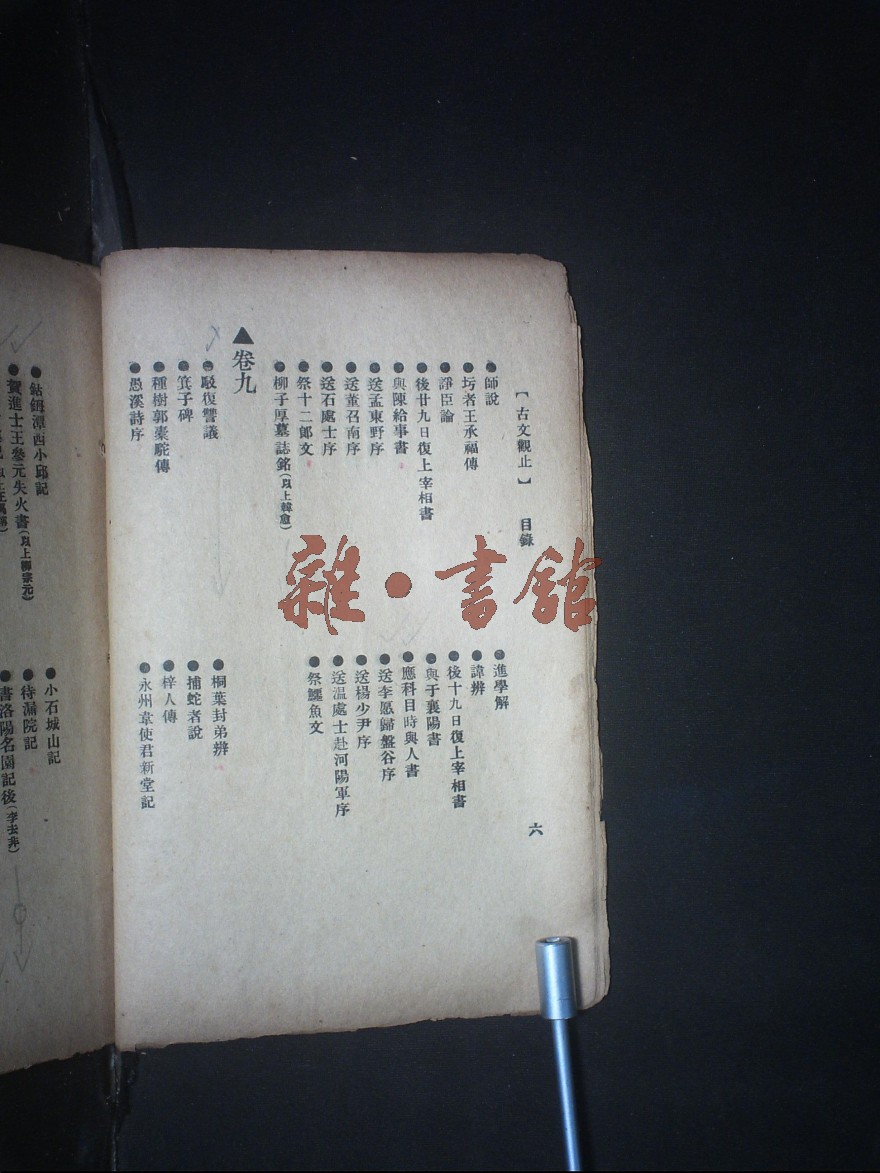 【古文觀止】 目錄
六
師說
進學解
圬者王承福傳
諱辨
諍臣論
後十九日復上宰相書
後廿九日復上宰相書
與于襄陽書
與陳給事書
應科目時與人書
送孟東野序
送李愿歸盤谷序
送董召南序
送楊少尹序
送石處士序
送溫處士赴河陽軍序
祭十二郎文
祭鱷魚文
柳子厚墓誌銘(以上韓愈)
▲卷九
駁復讐議
桐葉封弟辨
箕子碑
捕蛇者說
種樹郭橐駝傳
梓人傳
愚溪詩序
永州韋使君新堂記
鈷鉧潭西小邱記
小石城山記
賀進士王參元失火書(以上柳宗元)
待漏院記
書洛陽名園記後(李去非)
雜·書館